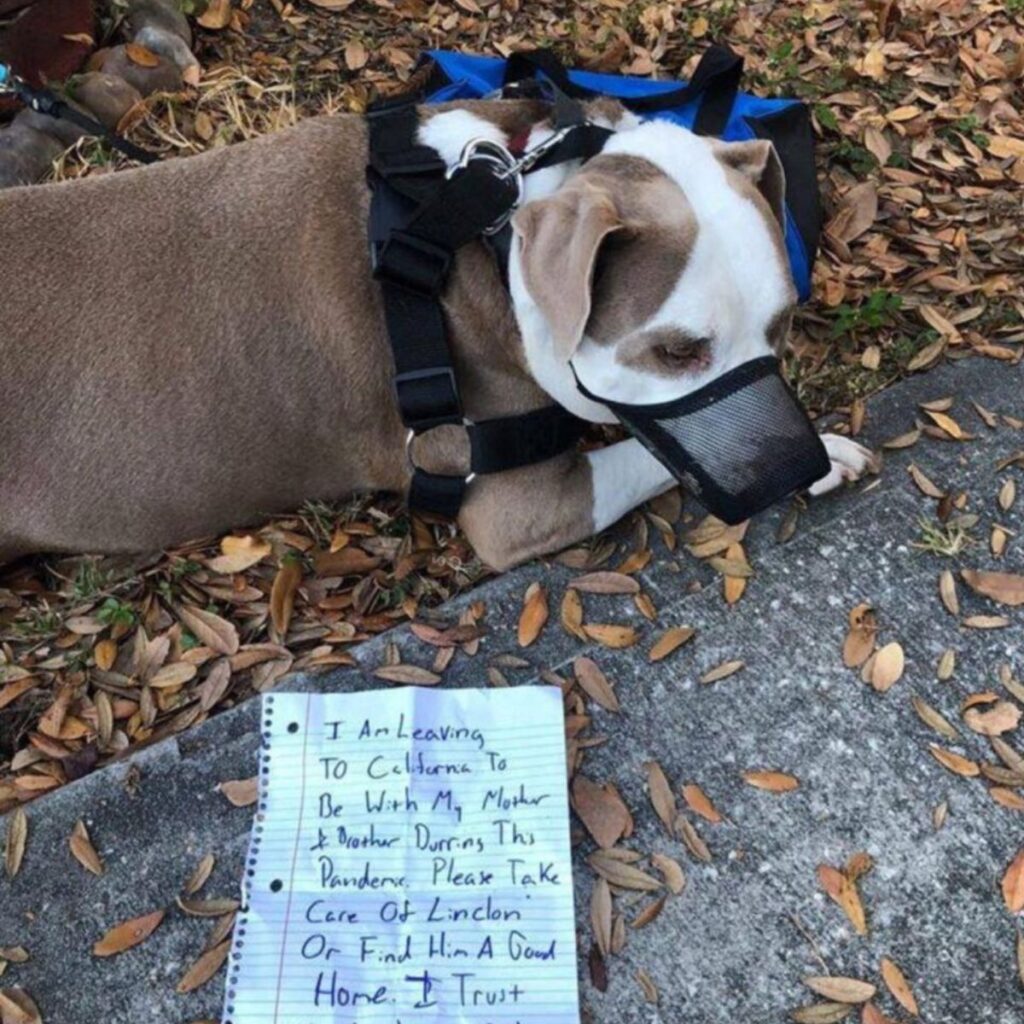 I Am Leaving
To California To
Be With My Mother
& Brother Durring This
Pandemic. Please Take
Care Of Linclon
Or Find Him A Good
Home. I Trust